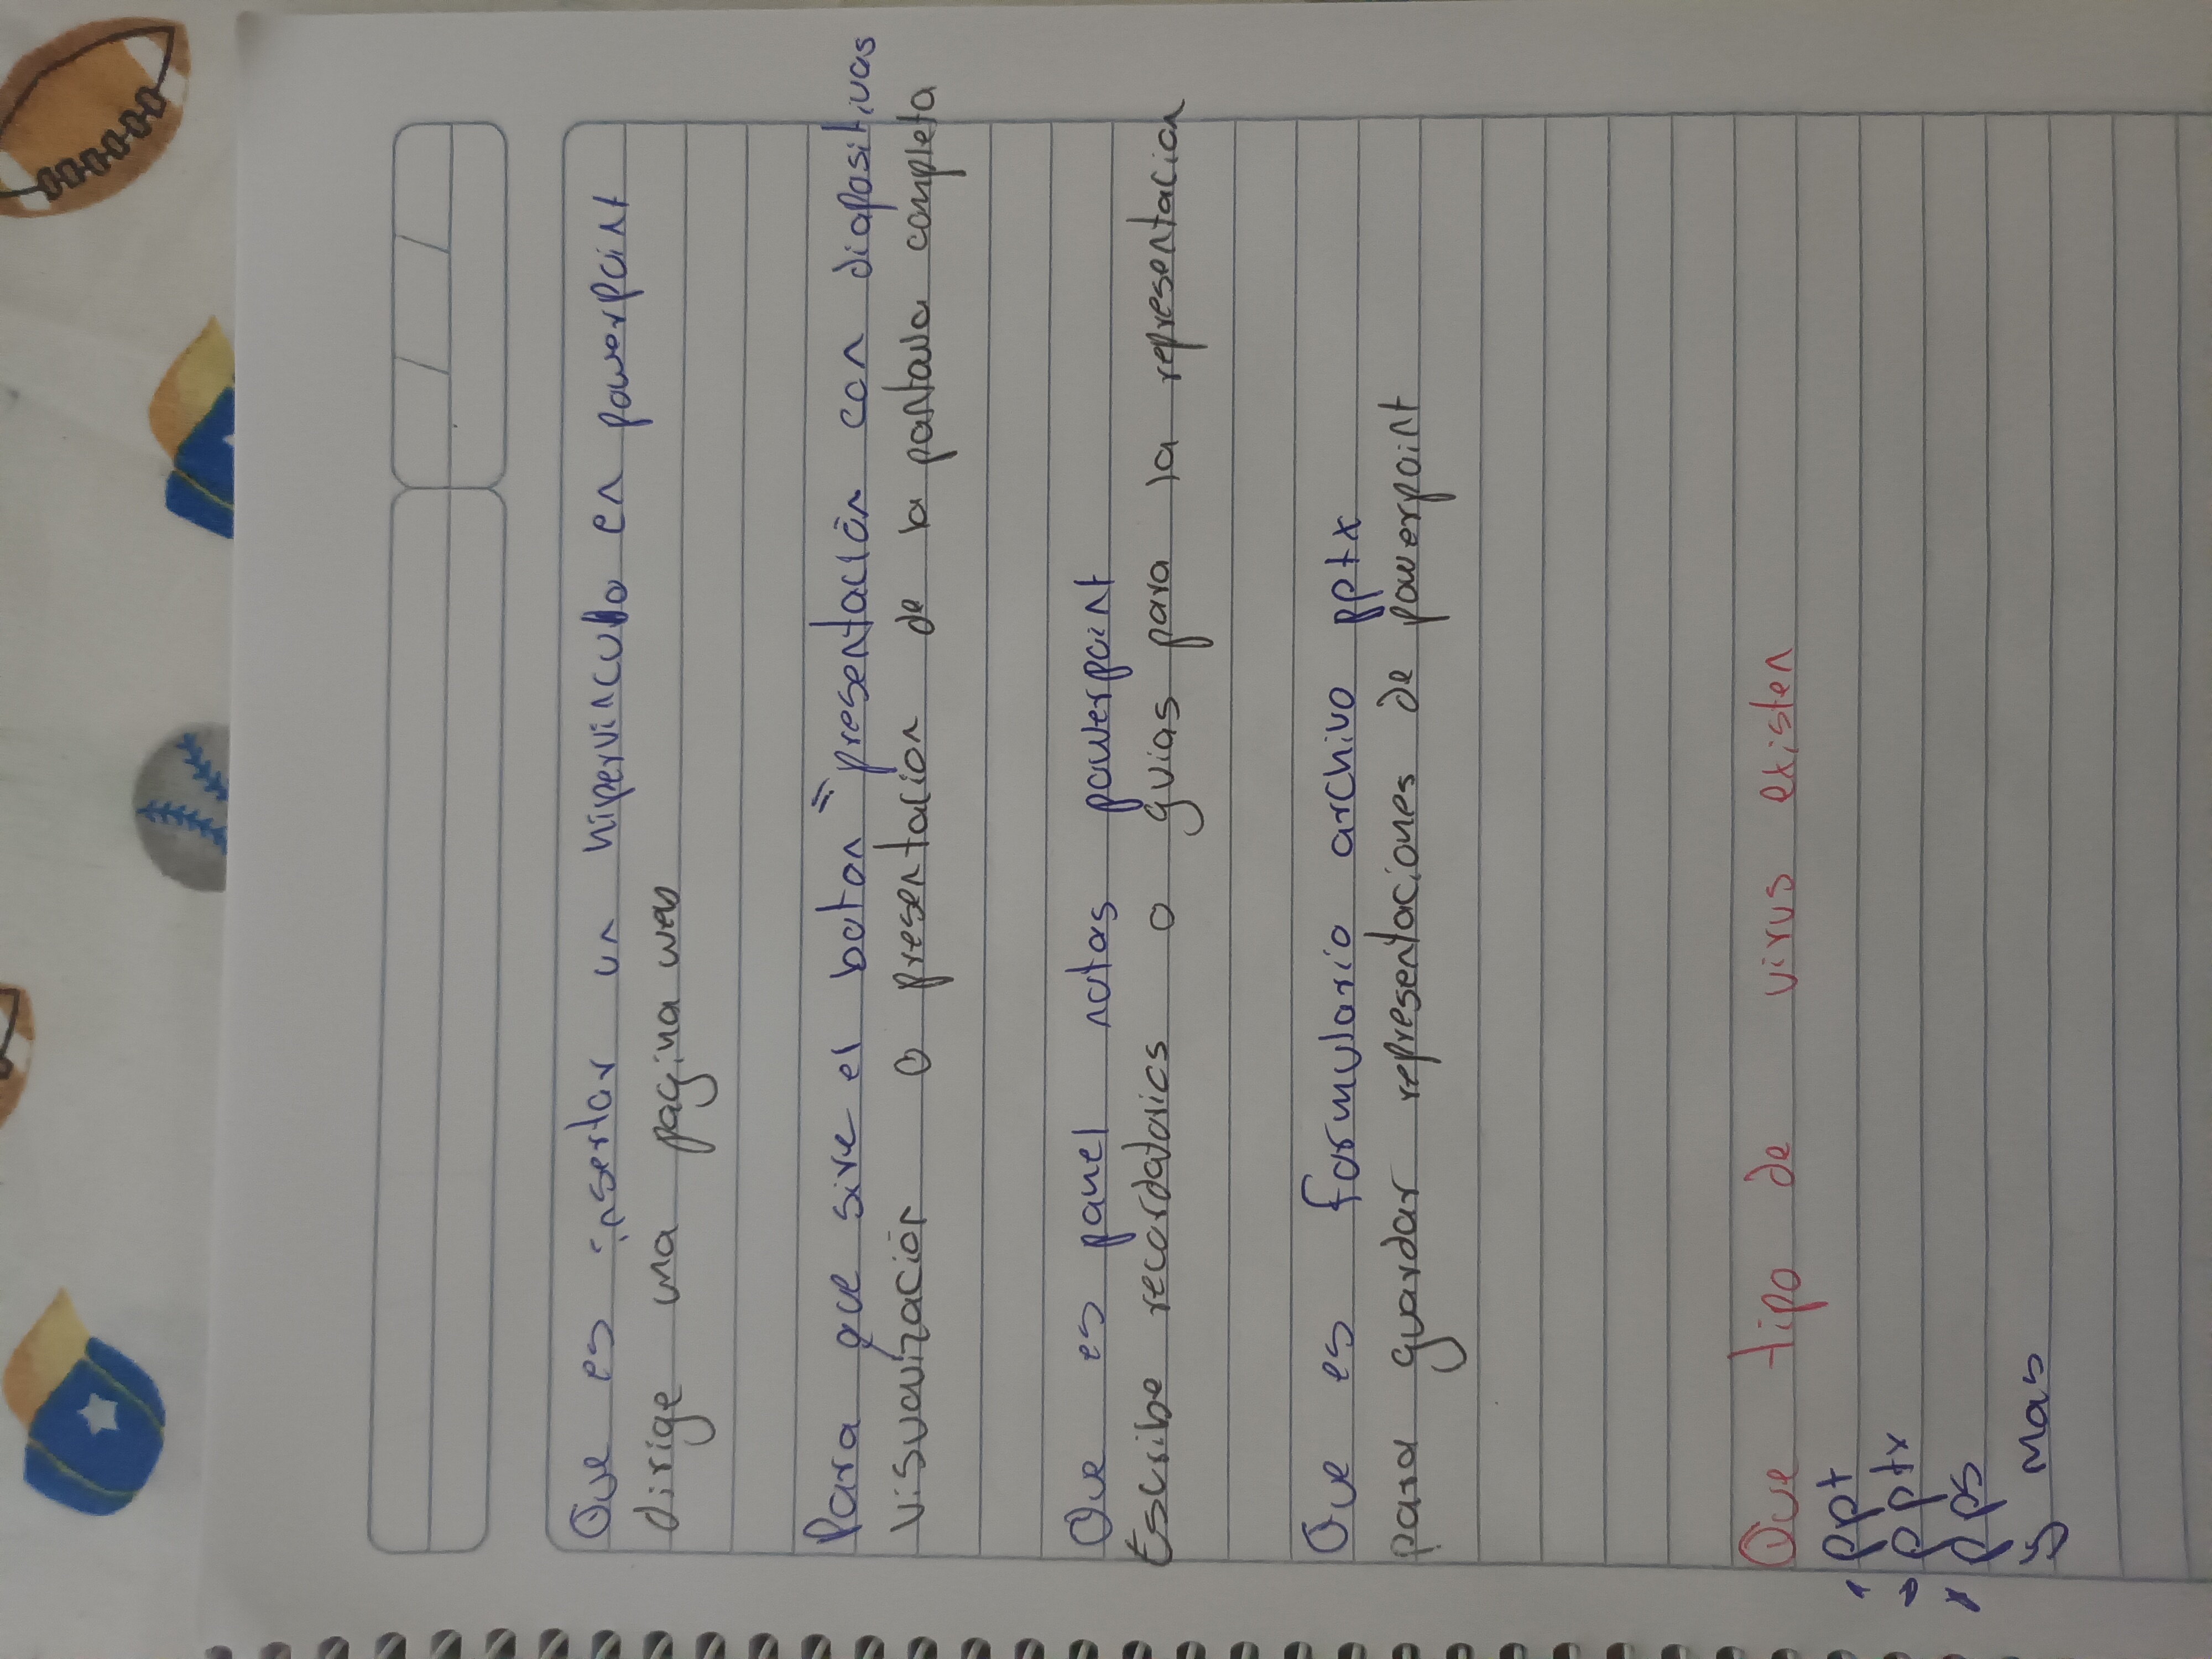 Que es insertar un hipervinculo en powerpoint
dirige una pagina web
Para que sive el boton "presentación con diapositivas
Visualización o presentacion de la pantalla completa
Que es panel notas powerpoint
Escribe recordatorios o guias para la representacion
Que es formulario archivo pptx
para guardar representaciones de powerpoint
Que tipo de virus existen
ppt
pptx
pps
y mas